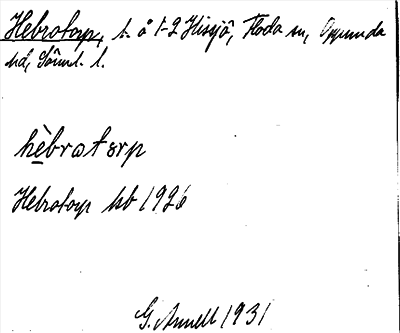 Hebrotorp, t. å 1-2 Hissjö, Floda sn, Oppunda
hd, Söml. l.
hèbrat orp
Hebrotorp hb 1926
G. Annell 1931